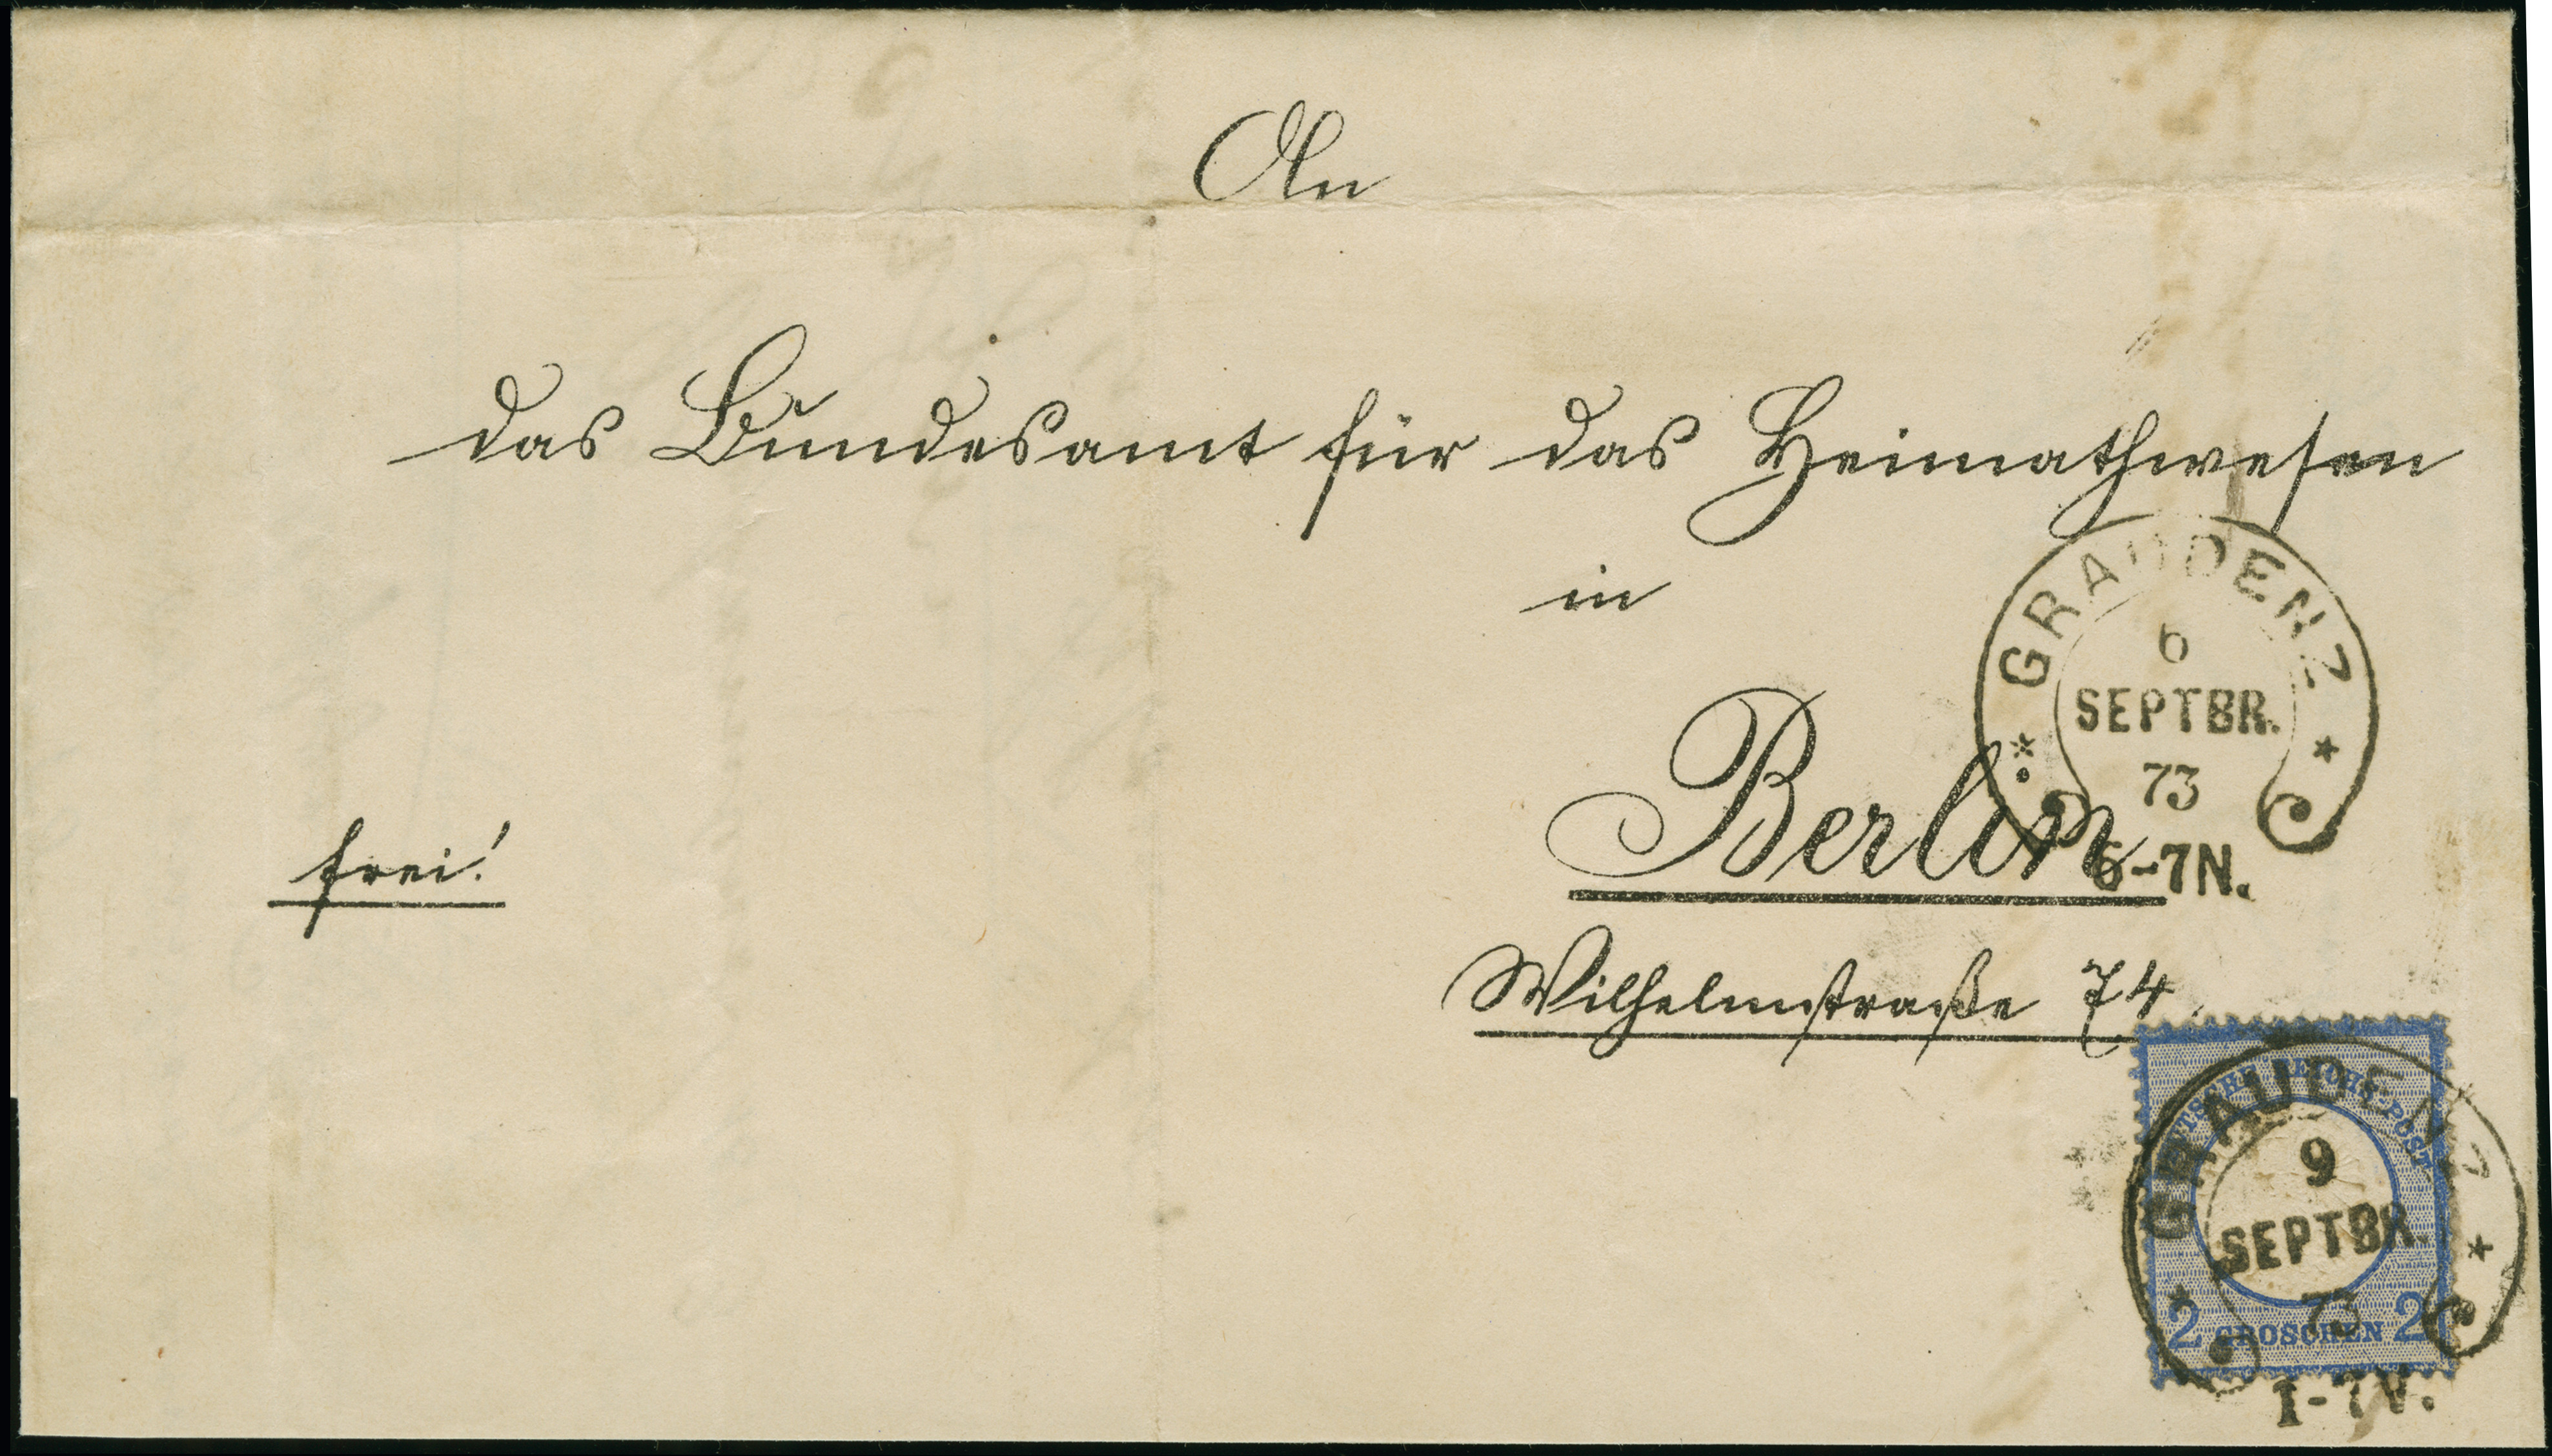 An
das Bundesamt für das Heimathwesen
in
GRAUDENZ
6
SEPTBR.
73
6-7N.
Berlin
frei!
Wilhelmstraße 74
DEUTSCHE REICHS-POST
GRAUDENZ
9
SEPTBR.
73
2 GROSCHEN 2